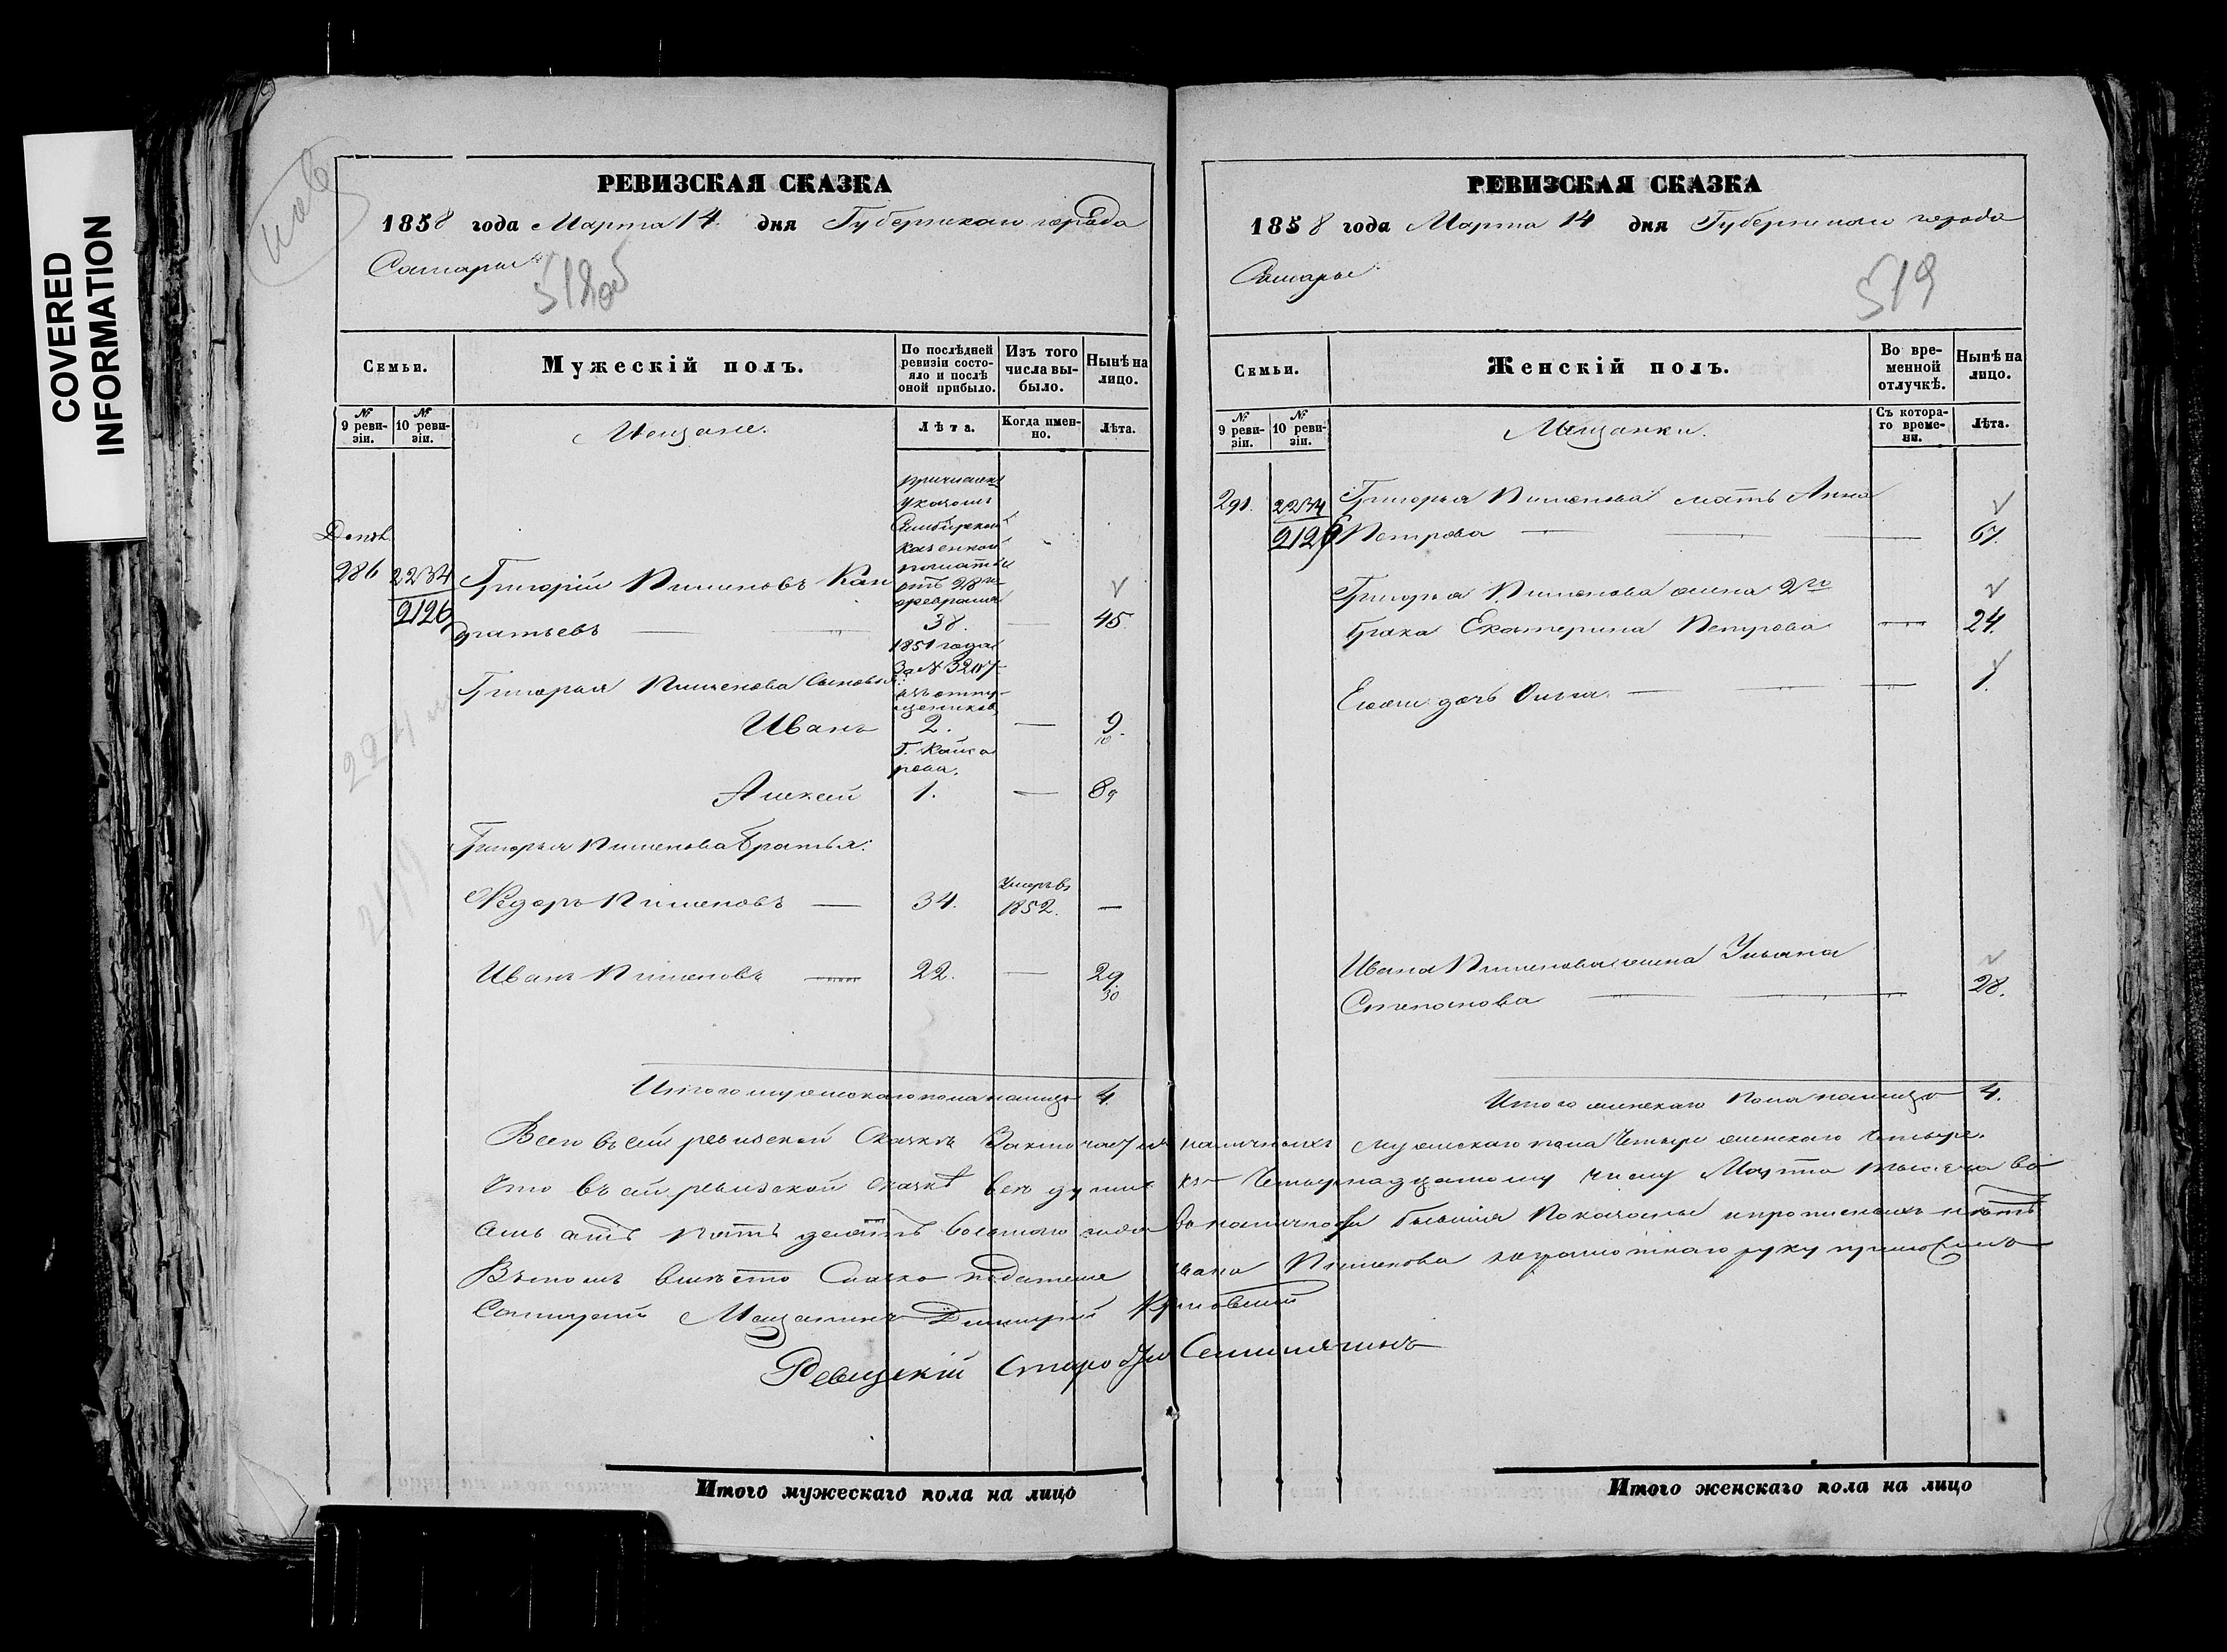 COVERED
INFORMATION
РЕВИЗСКАЯ СКАЗКА
1858 года Марта 14 дня Губернскаго города
Самары
518об
Семьи.
Мужескій полъ.
По послѣдней ревизіи состояло и послѣ оной прибыло.
Изъ того числа выбыло.
Нынѣ на лицо.
№ 9 ревизіи.
№ 10 ревизіи.
Мещане.
Лѣта.
Когда именно.
Лѣта.
причислен
указомъ
Симбирской
казенной
палаты
отъ 28го
февраля
1851 года
За № 3207
изъ отпу-
щенниковъ
Г. Кайса
рова.
Допол.
286 2234 Григорій Пименовъ Кон
2126 дратьевъ — 38. — 45.
Григорья Пименова сыновья:
Иванъ 2. — 9.
10
Алексей 1. — 8 9
Григорья Пименова братья:
Ѳедоръ Пименовъ — 34. Умеръ въ 1852. —
Иванъ Пименовъ — 22. — 29.
30
Итого мужескаго пола налицо 4.
РЕВИЗСКАЯ СКАЗКА
1858 года Марта 14 дня Губернскаго города
Самары
519
Семьи.
Женскій полъ.
Во временной отлучкѣ.
Нынѣ на лицо.
№ 9 ревизіи.
№ 10 ревизіи.
Мещанки.
Съ котораго времени.
Лѣта.
291. 2234 Григорья Пименова мать Анна
2126 Петрова — 67.
Григорья Пименова жена 2го
брака Екатерина Петрова — 24.
Его дочь — 1.
Ивана Пименова жена Ульяна
Степанова — 28.
Итого женскаго пола налицо 4.
Всего въ сей ревизской сказкѣ заключается наличныхъ мужескаго пола четыре женскаго четыре.
Что въ сей ревизской сказкѣ все души къ четырнадцатому числу Марта тысяча во
семь сотъ пять десятъ восьмого года въ наличности бывшія показаны и прописныхъ нѣтъ
Въ томъ вместо сказко подателя Ивана Пименова неграмотнаго руку приложилъ
Самарскій Мещанинъ Дмитрій
Ревизскій Староста
Итого мужескаго пола на лицо
Итого женскаго пола на лицо